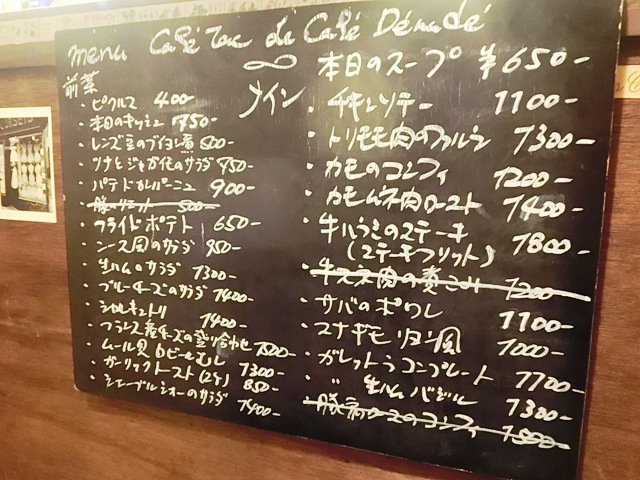 menu Café
本日のスープ ¥650-
前菜
・ピクルス 400-
・本日のキッシュ 750-
・レンズ豆のブイヨン煮 500-
・ツナとジャガイモのサラダ 750-
・パテドカンパーニュ 900-
500-
・フライドポテト 650-
・ニース風のサラダ 950-
・生ハムのサラダ 1300-
・ブルーチーズのサラダ 1400-
・シャルキュトリ 1400-
・フランス産チーズの盛り合わせ 1500-
・ムール貝白ビールむし 1300-
・ガーリックトースト(2ケ) 850-
・シェーブルショーのサラダ 1400-
メイン
・チキンソテー 1100-
・トリモモ肉のファルシ 1300-
・カモのコンフィ 1200-
・カモムネ肉ロースト 1400-
・牛ハラミのステーキ
(ステーキフリット) 1800-
・牛スネ肉の煮こみ 1200-
・サバのポワレ 1100-
・スナギモリヨン風 1000-
・ガレットコンプレート 1100-
・〃 生ハムバジル 1300-
のコンフィ 1500-